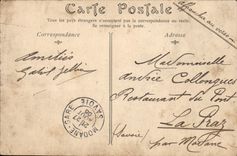 Carte Postale
Tous les pays étrangers n'acceptent pas la correspondance au recto.
Se renseigner à la poste.
Correspondance
Adresse
Amitiés
Mademoiselle
Andrée Collonques
Restaurant du Pont
La Praz
(Savoie) par Modane
MODANE-GARE
SAVOIE